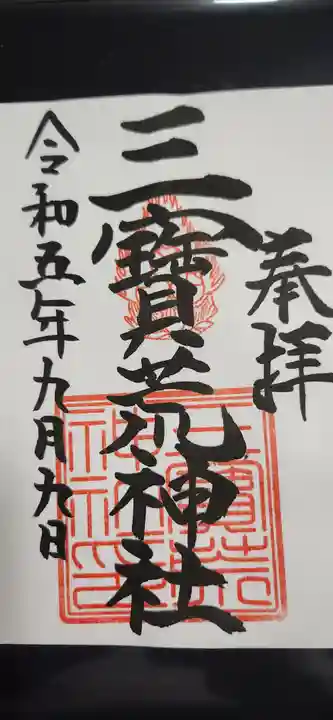 奉拝
三寳荒神社
令和五年九月九日